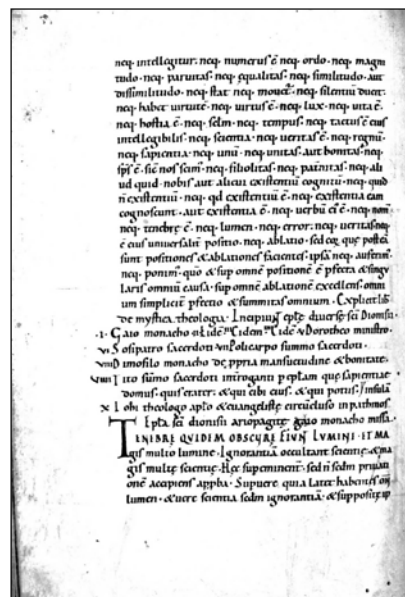 neq· intellegitur· neq· numerus ē· neq· ordo· neq· magni
tudo· neq· paruitas· neq· ęqualitas· neq· similitudo· aut
dissimilitudo· neq· stat neq· mouet̄· neq· silentiū ducit·
neq· habet uirtutē· neq· uirtus ē· neq· lux· neq· uita ē·
neq· hostia ē· neq· sclm· neq· tempus· neq· tactus ē eius
intellegibilis· neq· scientia· neq· ueritas ē· neq· regnū·
neq· sapientia· neq· unū· neq· unitas· aut bonitas· neq·
sp̄s ē· sic nos scim̄· neq· filiolitas· neq· pat̄nitas· neq· ali
ud quid· nobis aut alicui existentiū cognitū· neq· quid
n̄ existentiū· neq· qd existentiū ē· neq· existentia eam
cognoscunt· aut existentia ē· neq· uerbū ei ē· neq· nom̄·
neq· tenebrę ē· neq· lumen· neq· error· neq· ueritas· neq·
ē eius uniuersalit̄ positio· neq· ablatio· sed eoꝝ quę post eā
sunt positiones & ablationes facientes· ipsā neq· auferim̄·
neq· ponim̄· quo & sup omnē positionē ē pfecta & singu
laris omniū causa· sup omnē ablationē excellens· omni
um simpliciū pfectio & summitas omnium· Explicit lib̄
de mystica theologia· Incipiunt eplę diuersę sci Dionisii·
·I· Gaio monacho· II· Eidē III· Eidem· IIII· Eidē V· Dorotheo ministro·
VI· Sosipatro sacerdoti VII· Policarpo summo sacerdoti·
VIII· Dimofilo monacho de ppria mansuetudine & bonitate·
VIIII· Tito sūmo sacerdoti introganti p eplam quę sapientiae
domus· quis crater· & qui cibi eius· & qui potus·
X· Iohi theologo aplo & euangelistę circūcluso in pathmos·
Epla sci dionisii ariopagitę gaio monacho missa·
TENEBRE QUIDEM OBSCURE FIUNT LUMINI· ET MA
gis multo lumine· Ignorantiā occultant scientię· & ma
gis multę scientię· Hęc supeminent̄· sed n̄ sedm̄ priuati
onē accipiens
lumen· & uere scientia sedm̄ ignorantiā· & supposite ip